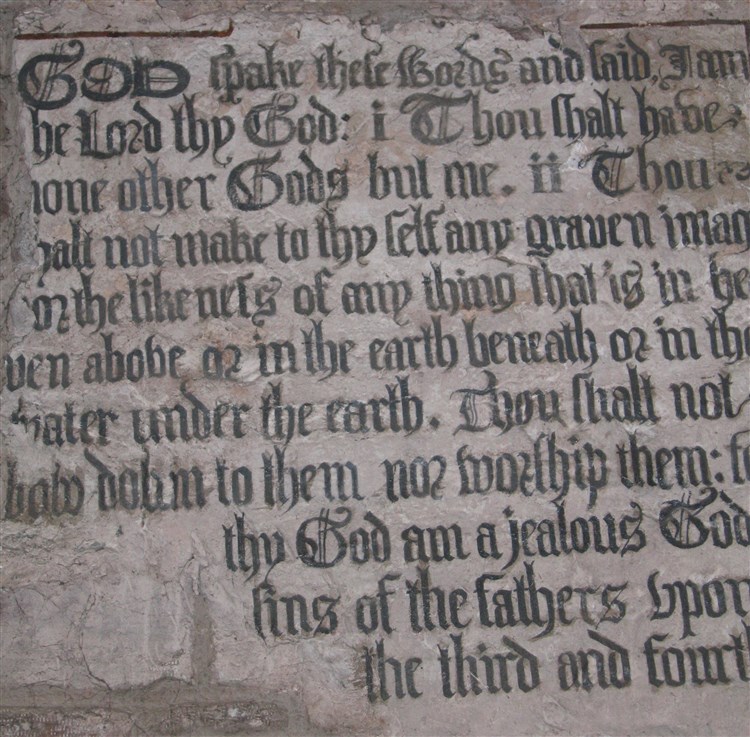 GOD spake these Words and said, I am
he Lord thy God: i Thou shalt have
none other Gods but me. ii Thou
halt not make to thy self any graven imag
or the likeness of any thing that is in he
ven above or in the earth beneath or in the
water under the earth. Thou shalt not
bow down to them nor worship them: fo
thy God am a jealous God
sins of the fathers vpon
the third and fourt